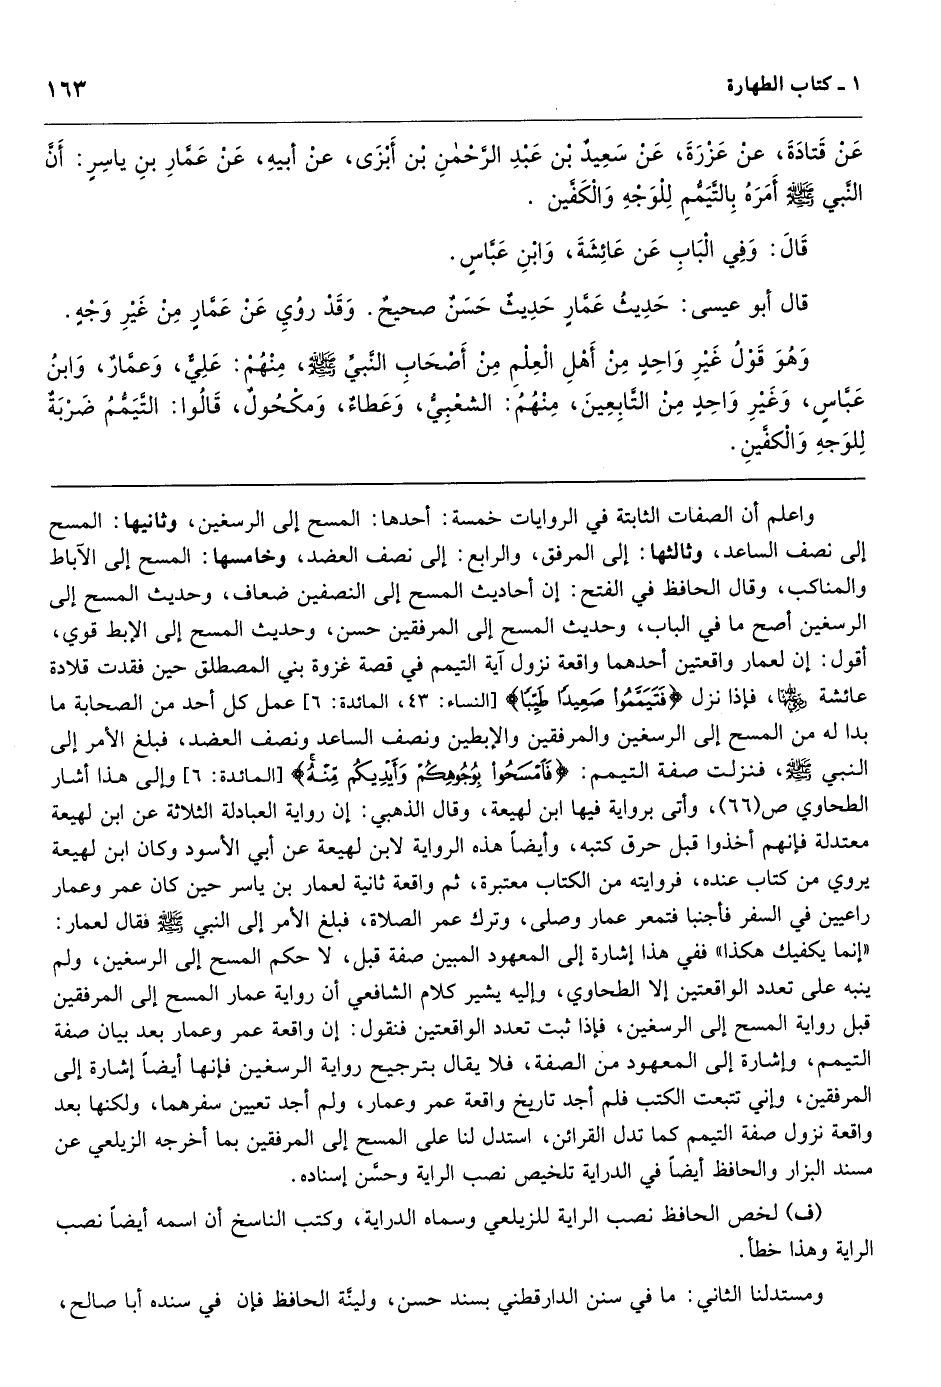 ١ ـ كتاب الطهارة ١٦٣
عَنْ قَتادَةَ، عنْ عَزْرَةَ، عَنْ سَعِيدٌ بْن عَبْدِ الرَّحْمٰنِ بْن أَبْزَى، عنْ أبيهِ، عَنْ عَمَّارِ بنِ ياسِرٍ: أَنَّ
النَّبي ﷺ أَمَرَهُ بِالتَّيَمُّمِ لِلْوَجْهِ وَالْكَفَّينِ .
قَالَ: وَفِي الْبَابِ عَن عَائِشَةَ، وَابْنِ عَبَّاسٍ.
قال أبو عيسى: حَدِيثُ عَمَّارٍ حَدِيثٌ حَسَنٌ صحيحٌ. وَقَدْ رُوِيِ عَنْ عَمَّارٍ مِنْ غَيْرِ وَجْهٍ.
وَهُوَ قَوْلُ غَيْرِ وَاحِدٍ مِنْ أَهْلِ الْعِلْمِ مِنْ أَصْحَابِ النَّبيِّ ﷺ، مِنْهُمْ: عَلِيٌّ، وَعمَّارٌ، وَابنُ
عَبَّاسٍ، وَغَيْرِ وَاحِدٍ مِنْ التَّابِعِينَ، مِنْهُمُ: الشعْبيُّ، وَعَطاءٌ، وَمكْحُولٌ، قَالُوا: التَّيَمُّمُ ضَرْبَةٌ
لِلوَجهِ وَالْكَفَّينِ.
واعلم أن الصفات الثابتة في الروايات خمسة: أحدها: المسح إلى الرسغين، وثانيها: المسح
إلى نصف الساعد، وثالثها: إلى المرفق، والرابع: إلى نصف العضد، وخامسها: المسح إلى الآباط
والمناكب، وقال الحافظ في الفتح: إن أحاديث المسح إلى النصفين ضعاف، وحديث المسح إلى
الرسغين أصح ما في الباب، وحديث المسح إلى المرفقين حسن، وحديث المسح إلى الإبط قوي،
أقول: إن لعمار واقعتين أحدهما واقعة نزول آية التيمم في قصة غزوة بني المصطلق حين فقدت قلادة
عائشة رضي الله عنها، فإذا نزل ﴿فَتَيَمَّمُوا صَعِيدًا طَيِّبًا﴾ [النساء: ٤٣، المائدة: ٦] عمل كل أحد من الصحابة ما
بدا له من المسح إلى الرسغين والمرفقين والإبطين ونصف الساعد ونصف العضد، فبلغ الأمر إلى
النبي ﷺ، فنزلت صفة التيمم: ﴿فَامْسَحُوا بِوُجُوهِكُمْ وَأَيْدِيكُم مِّنْهُ﴾ [المائدة: ٦] وإلى هذا أشار
الطحاوي ص(٦٦)، وأتى برواية فيها ابن لهيعة، وقال الذهبي: إن رواية العبادلة الثلاثة عن ابن لهيعة
معتدلة فإنهم أخذوا قبل حرق كتبه، وأيضاً هذه الرواية لابن لهيعة عن أبي الأسود وكان ابن لهيعة
يروي من كتاب عنده، فروايته من الكتاب معتبرة، ثم واقعة ثانية لعمار بن ياسر حين كان عمر وعمار
راعيين في السفر فأجنبا فتمعر عمار وصلى، وترك عمر الصلاة، فبلغ الأمر إلى النبي ﷺ فقال لعمار:
«إنما يكفيك هكذا» ففي هذا إشارة إلى المعهود المبين صفة قبل، لا حكم المسح إلى الرسغين، ولم
ينبه على تعدد الواقعتين إلا الطحاوي، وإليه يشير كلام الشافعي أن رواية عمار المسح إلى المرفقين
قبل رواية المسح إلى الرسغين، فإذا ثبت تعدد الواقعتين فنقول: إن واقعة عمر وعمار بعد بيان صفة
التيمم، وإشارة إلى المعهود من الصفة، فلا يقال بترجيح رواية الرسغين فإنها أيضاً إشارة إلى
المرفقين، وإني تتبعت الكتب فلم أجد تاريخ واقعة عمر وعمار، ولم أجد تعيين سفرهما، ولكنها بعد
واقعة نزول صفة التيمم كما تدل القرائن، استدل لنا على المسح إلى المرفقين بما أخرجه الزيلعي عن
مسند البزار والحافظ أيضاً في الدراية تلخيص نصب الراية وحسَّن إسناده.
(ف) لخص الحافظ نصب الراية للزيلعي وسماه الدراية، وكتب الناسخ أن اسمه أيضاً نصب
الراية وهذا خطأ.
ومستدلنا الثاني: ما في سنن الدارقطني بسند حسن، وليَّنه الحافظ فإن في سنده أبا صالح،